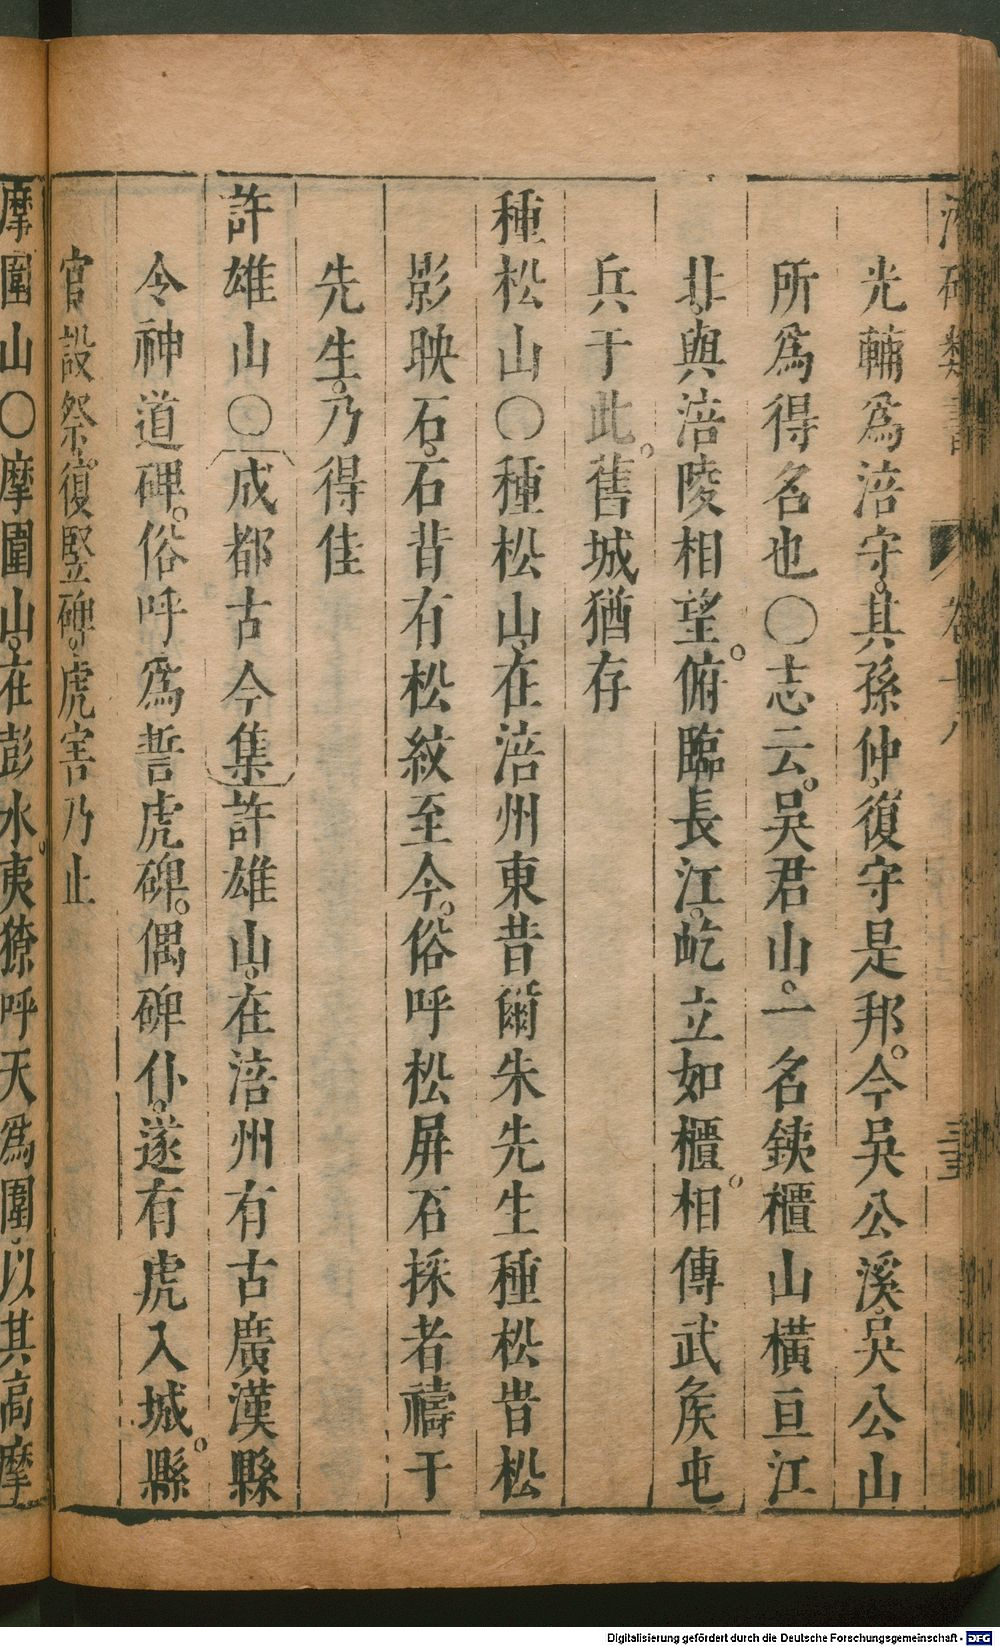 光輔爲涪守。其孫仲。復守是邦。今吳公溪。吳公山
所爲得名也〇志云。吳君山。一名鐵櫃山橫亘江
北。與涪陵相望。俯臨長江。屹立如櫃。相傳武侯屯
兵于此。舊城猶存
種松山〇種松山。在涪州東昔爾朱先生種松昔松
影映石。石昔有松紋至今。俗呼松屏石採者禱于
先生。乃得佳
許雄山〇成都古今集許雄山。在涪州有古廣漢縣
令神道碑。俗呼爲誓虎碑。偶碑仆。遂有虎入城。縣
官設祭。復竪碑。虎害乃止
摩圍山〇摩圍山。在彭水。夷獠呼天爲圍。以其高摩
Digitalisierung gefördert durch die Deutsche Forschungsgemeinschaft - DFG